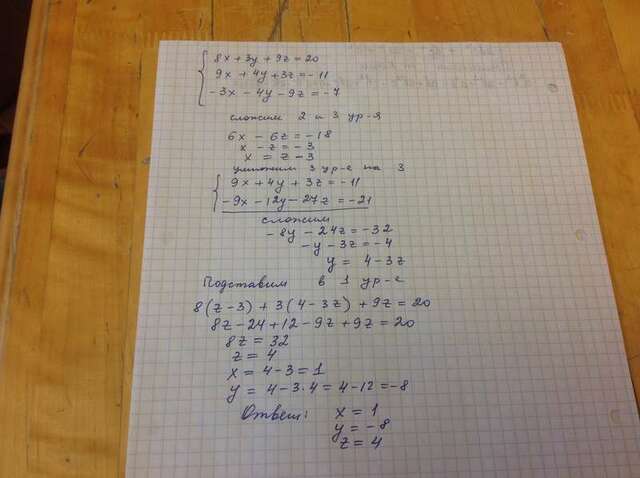 8x + 3y + 9z = 20
9x + 4y + 3z = -11
-3x - 4y - 9z = -7
сложим 2 и 3 ур-я
6x - 6z = -18
x - z = -3
x = z - 3
умножим 3 ур-е на 3
9x + 4y + 3z = -11
-9x - 12y - 27z = -21
сложим
-8y - 24z = -32
-y - 3z = -4
y = 4 - 3z
Подставим в 1 ур-е
8(z - 3) + 3(4 - 3z) + 9z = 20
8z - 24 + 12 - 9z + 9z = 20
8z = 32
z = 4
x = 4 - 3 = 1
y = 4 - 3·4 = 4 - 12 = -8
Ответ: x = 1
y = -8
z = 4